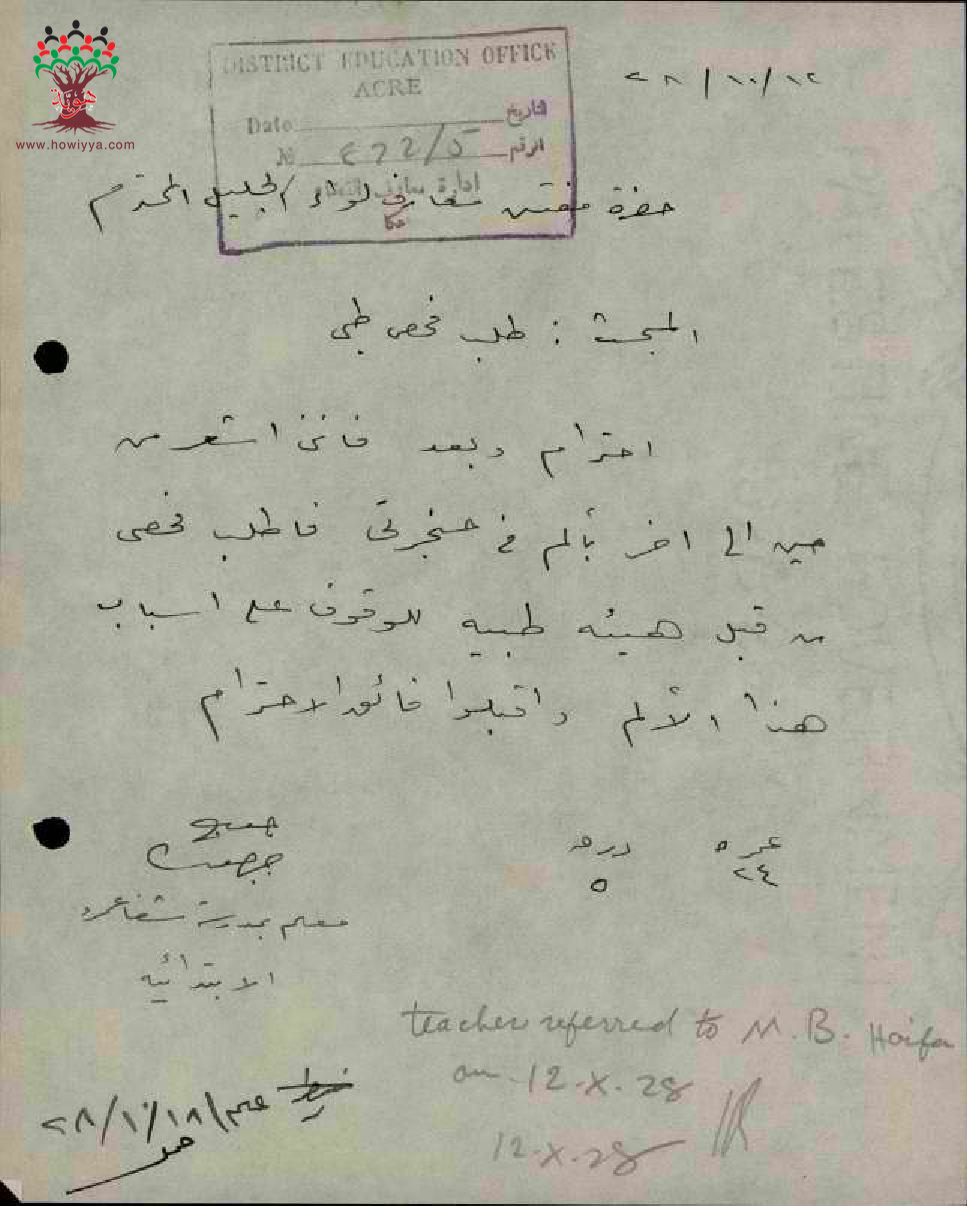 هوية
www.howiyya.com
DISTRICT EDUCATION OFFICE
ACRE
Date تاريخ
№ ٤٢٢/٥ الرقم
ادارة معارف
عكا
٢٨/١٠/١٢
حضرة مفتش معارف لواء الجليل المحترم
المبحث : طلب فحص طبي
احترام وبعد فانني اشعر من
حين الى اخر بألم في حنجرتي فاطلب فحصي
من قبل هيئه طبيه للوقوف على اسباب
هذا الألم واقبلوا فائق الاحترام
عمره درجه
٢٤ ٥
معلم بمدرسة شفاعمرو
الابتدائيه
teacher referred to M.B. Haifa
on 12.X.28
12.X.28
٢٨/١٠/١٨